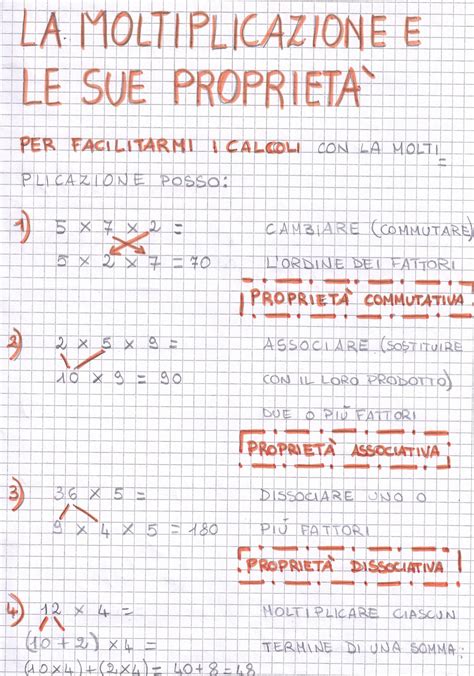 LA MOLTIPLICAZIONE E
LE SUE PROPRIETÀ
PER FACILITARMI I CALCOLI CON LA MOLTI
PLICAZIONE POSSO:
1) 5 × 7 × 2 = CAMBIARE (COMMUTARE)
5 × 2 × 7 = 70 L'ORDINE DEI FATTORI
PROPRIETÀ COMMUTATIVA
2) 2 × 5 × 9 = ASSOCIARE (SOSTITUIRE
10 × 9 = 90 CON IL LORO PRODOTTO)
DUE O PIÙ FATTORI
PROPRIETÀ ASSOCIATIVA
3) 36 × 5 = DISSOCIARE UNO O
9 × 4 × 5 = 180 PIÙ FATTORI
PROPRIETÀ DISSOCIATIVA
4) 12 × 4 = MOLTIPLICARE CIASCUN
(10 + 2) × 4 = TERMINE DI UNA SOMMA:
(10×4)+(2×4) = 40+8=48